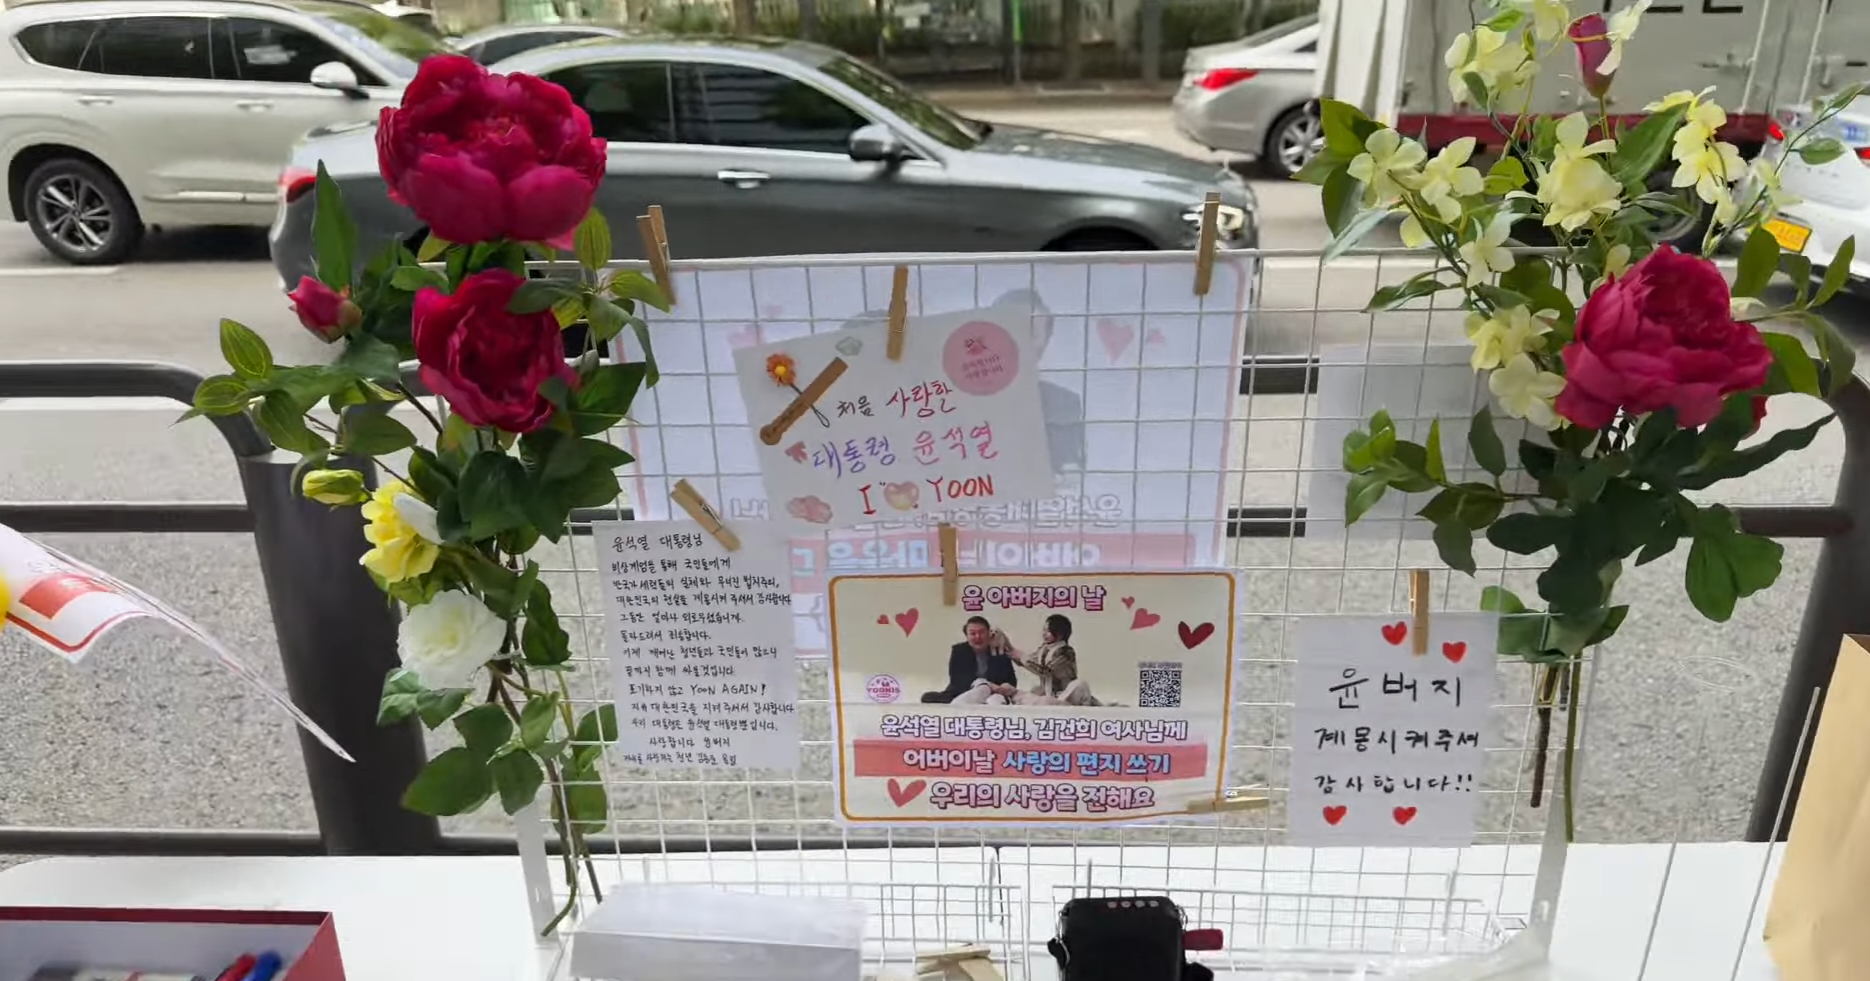 처음 사랑한
대통령 윤석열
I YOON
윤석열 대통령님
비상계엄을 통해 국민들에게
반국가세력들의 실체와 무너진 법치주의,
대한민국의 현실을 계몽시켜 주셔서 감사합니다
그동안 얼마나 외로우셨습니까.
몰라드려서 죄송합니다.
이제 깨어난 청년들과 국민들이 있으니
끝까지 함께 싸울것입니다.
포기하지 않고 YOON AGAIN!
자유대한민국을 지켜주셔서 감사합니다
우리 대통령은 윤석열 대통령뿐입니다.
사랑합니다 윤버지
윤 아버지의 날
YOONIS
윤석열 대통령님, 김건희 여사님께
어버이날 사랑의 편지 쓰기
우리의 사랑을 전해요
윤버지
계몽시켜주셔
감사합니다!!